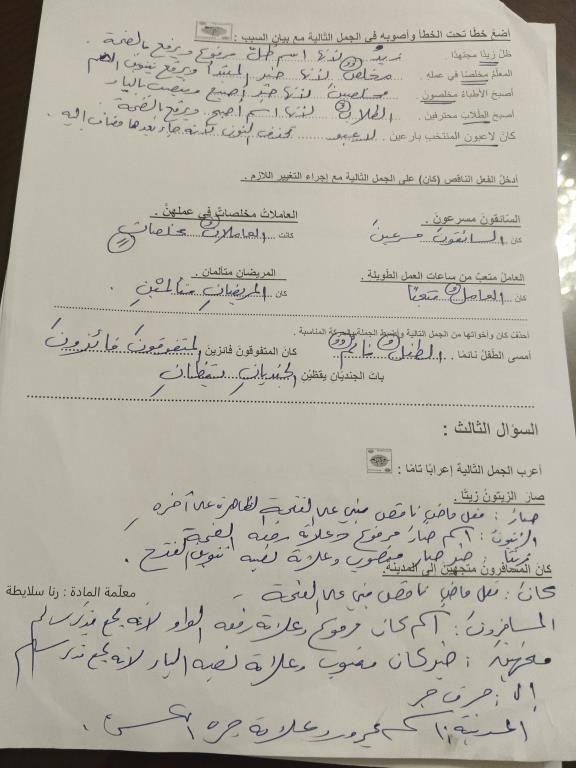 أضعُ خطًا تحت الخطأ وأصوبه في الجمل التالية مع بيان السبب :
ظلّ زيدًا مجتهدًا . زيدٌ لأنها اسم ظلّ مرفوع ويرفع بالضمة
المعلمُ مخلصًا في عملهِ . مخلصٌ لأنها خبر المبتدأ ويرفع بتنوين الضم
أصبحَ الأطباءُ مخلصون . مخلصين لأنها خبر أصبح وينصب بالياء
أصبحَ الطلابَ محترفين . الطلابُ لأنها اسم أصبح ويرفع بالضمة
كانَ لاعبون المنتخب بارعين . لاعبو تحذف النون لأنه جاء بعدها مضاف إليه .
أدخلُ الفعل الناقص (كان) على الجمل التالية مع إجراء التغيير اللازم .
السّائقون مسرعون . العاملاتُ مخلصاتٌ في عملهنّ .
كان السائقون مسرعين كانت العاملاتُ مخلصاتٍ
العاملُ متعبٌ من ساعات العمل الطويلة . المريضانِ متألمان .
كان العاملُ متعبًا كان المريضانِ متألمَيْنِ .
أحذف كان وأخواتها من الجمل التالية وأضبط الجملة بالحركة المناسبة .
أمسى الطفلُ نائمًا . الطفلُ نائمٌ كانَ المتفوقونَ فائزين المتفوقونَ فائزونَ
باتَ الجنديّانِ يقظَيْنِ الجنديانِ يقظانِ
السؤال الثالث :
أعرب الجمل التالية إعرابًا تامًا :
صارَ الزيتونُ زيتًا .
صارَ : فعل ماضٍ ناقص مبني على الفتحة الظاهرة على آخره
الزيتونُ : اسم صار مرفوع وعلامة رفعه الضمة
زيتًا : خبر صار منصوب وعلامة نصبه تنوين الفتح .
كانَ المسافرونَ متجهينَ إلى المدينة
معلّمة المادة : رنا سلايطة
كانَ : فعل ماضٍ ناقص مبني على الفتحة
المسافرونَ : اسم كان مرفوع وعلامة رفعه الواو لأنه جمع مذكر سالم
متجهينَ : خبر كان منصوب وعلامة نصبه الياء لأنه جمع مذكر سالم
إلى : حرف جر
المدينة : اسم مجرور وعلامة جره الكسرة .